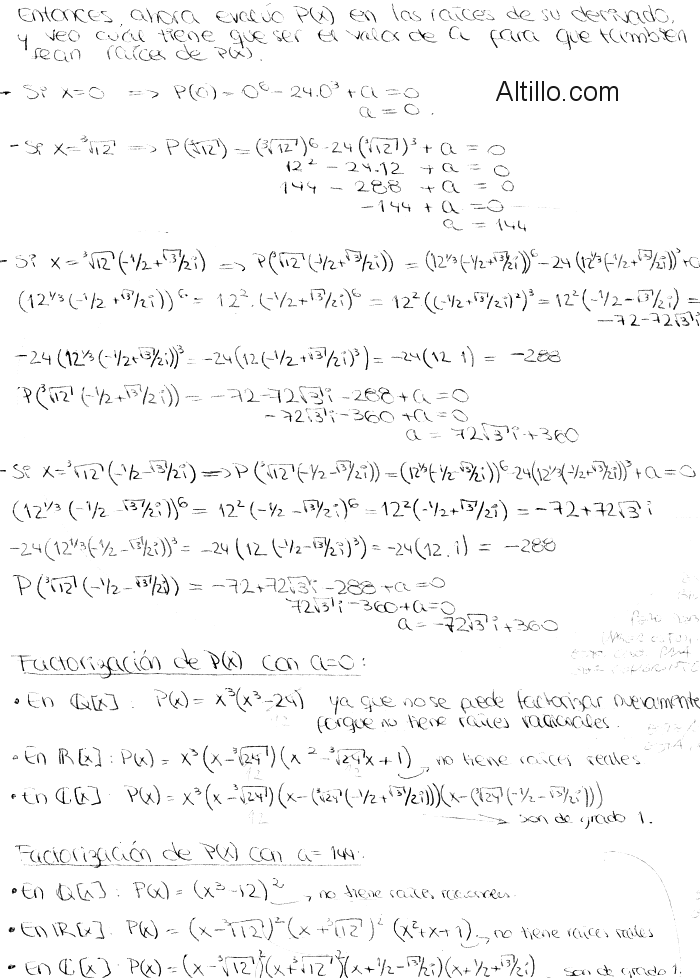 Entonces, ahora evalúo P(x) en las raíces de su derivada,
y veo cuál tiene que ser el valor de a para que también
sean raíces de P(x).
Altillo.com
- Si x=0 => P(0) = 0⁶ - 24.0³ + a = 0
a = 0.
- Si x=³√12 => P(³√12) = (³√12)⁶ - 24(³√12)³ + a = 0
12² - 24.12 + a = 0
144 - 288 + a = 0
-144 + a = 0
a = 144
- Si x=³√12(-1/2+√3/2i) => P(³√12(-1/2+√3/2i)) = (12^1/3(-1/2+√3/2i))⁶ - 24(12^1/3(-1/2+√3/2i))³+a
(12^1/3(-1/2+√3/2i))⁶ = 12².(-1/2+√3/2i)⁶ = 12²((-1/2+√3/2i)²)³ = 12²(-1/2-√3/2i) =
-72-72√3i
-24(12^1/3(-1/2+√3/2i))³ = -24(12(-1/2+√3/2i)³) = -24(12.1) = -288
P(³√12(-1/2+√3/2i)) = -72-72√3i-288+a=0
-72√3i-360+a=0
a = 72√3i+360
- Si x=³√12(-1/2-√3/2i) => P(³√12(-1/2-√3/2i)) = (12^1/3(-1/2-√3/2i))⁶ - 24(12^1/3(-1/2+√3/2i))³+a=0
(12^1/3(-1/2-√3/2i))⁶ = 12²(-1/2-√3/2i)⁶ = 12²(-1/2+√3/2i) = -72+72√3i
-24(12^1/3(-1/2-√3/2i))³ = -24(12(-1/2-√3/2i)³) = -24(12.i) = -288
P(³√12(-1/2-√3/2i)) = -72+72√3i-288+a=0
72√3i-360+a=0
a=-72√3i+360
Factorización de P(x) con a=0:
• En Q[x]: P(x) = x³(x³-24) ya que no se puede factorizar nuevamente
porque no tiene raíces racionales.
• En R[x]: P(x) = x³(x-³√24)(x²-³√24x+1) no tiene raíces reales
• En C[x]: P(x) = x³(x-³√24)(x-(³√24(-1/2+√3/2i)))(x-(³√24(-1/2-√3/2i)))
son de grado 1.
Factorización de P(x) con a=144:
• En Q[x]: P(x) = (x³-12)², no tiene raíces racionales.
• En R[x]: P(x) = (x-³√12)²(x+³√12)²(x²+x+1), no tiene raíces reales
• En C[x]: P(x) = (x-³√12)²(x+³√12)²(x+1/2-√3/2i)(x+1/2+√3/2i) son de grado 1.